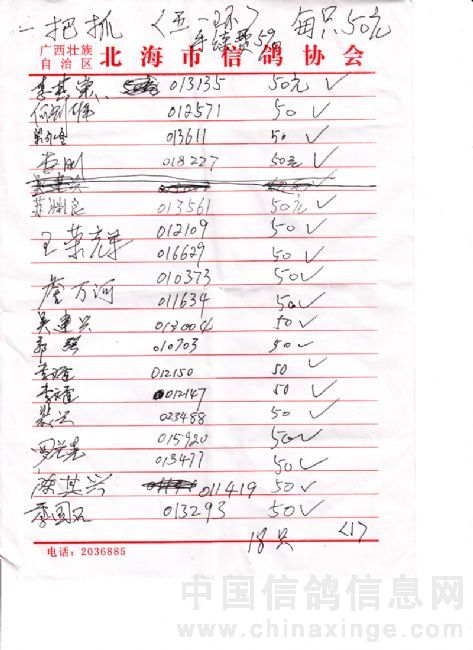 一把抓 〈五一环〉 每只50元
手续费59
广西壮族自治区 北海市信鸽协会
李其荣 013135 50元 ✓
何刚雄 012571 50 ✓
013611 50 ✓
李刚 018227 50元 ✓
苏洲良 013561 50元 ✓
王荣 012109 50 ✓
016629 50 ✓
詹万河 010373 50 ✓
011634 50 ✓
吴建兴 50 ✓
010703 50 ✓
012150 50 ✓
012147 50 ✓
裴兴 023488 50 ✓
015920 50 ✓
013477 50 ✓
陈其兴 011419 50 ✓
李国 013293 50 ✓
18只 〈1〉
电话：2036885
中国信鸽信息网
www.chinaxinge.com